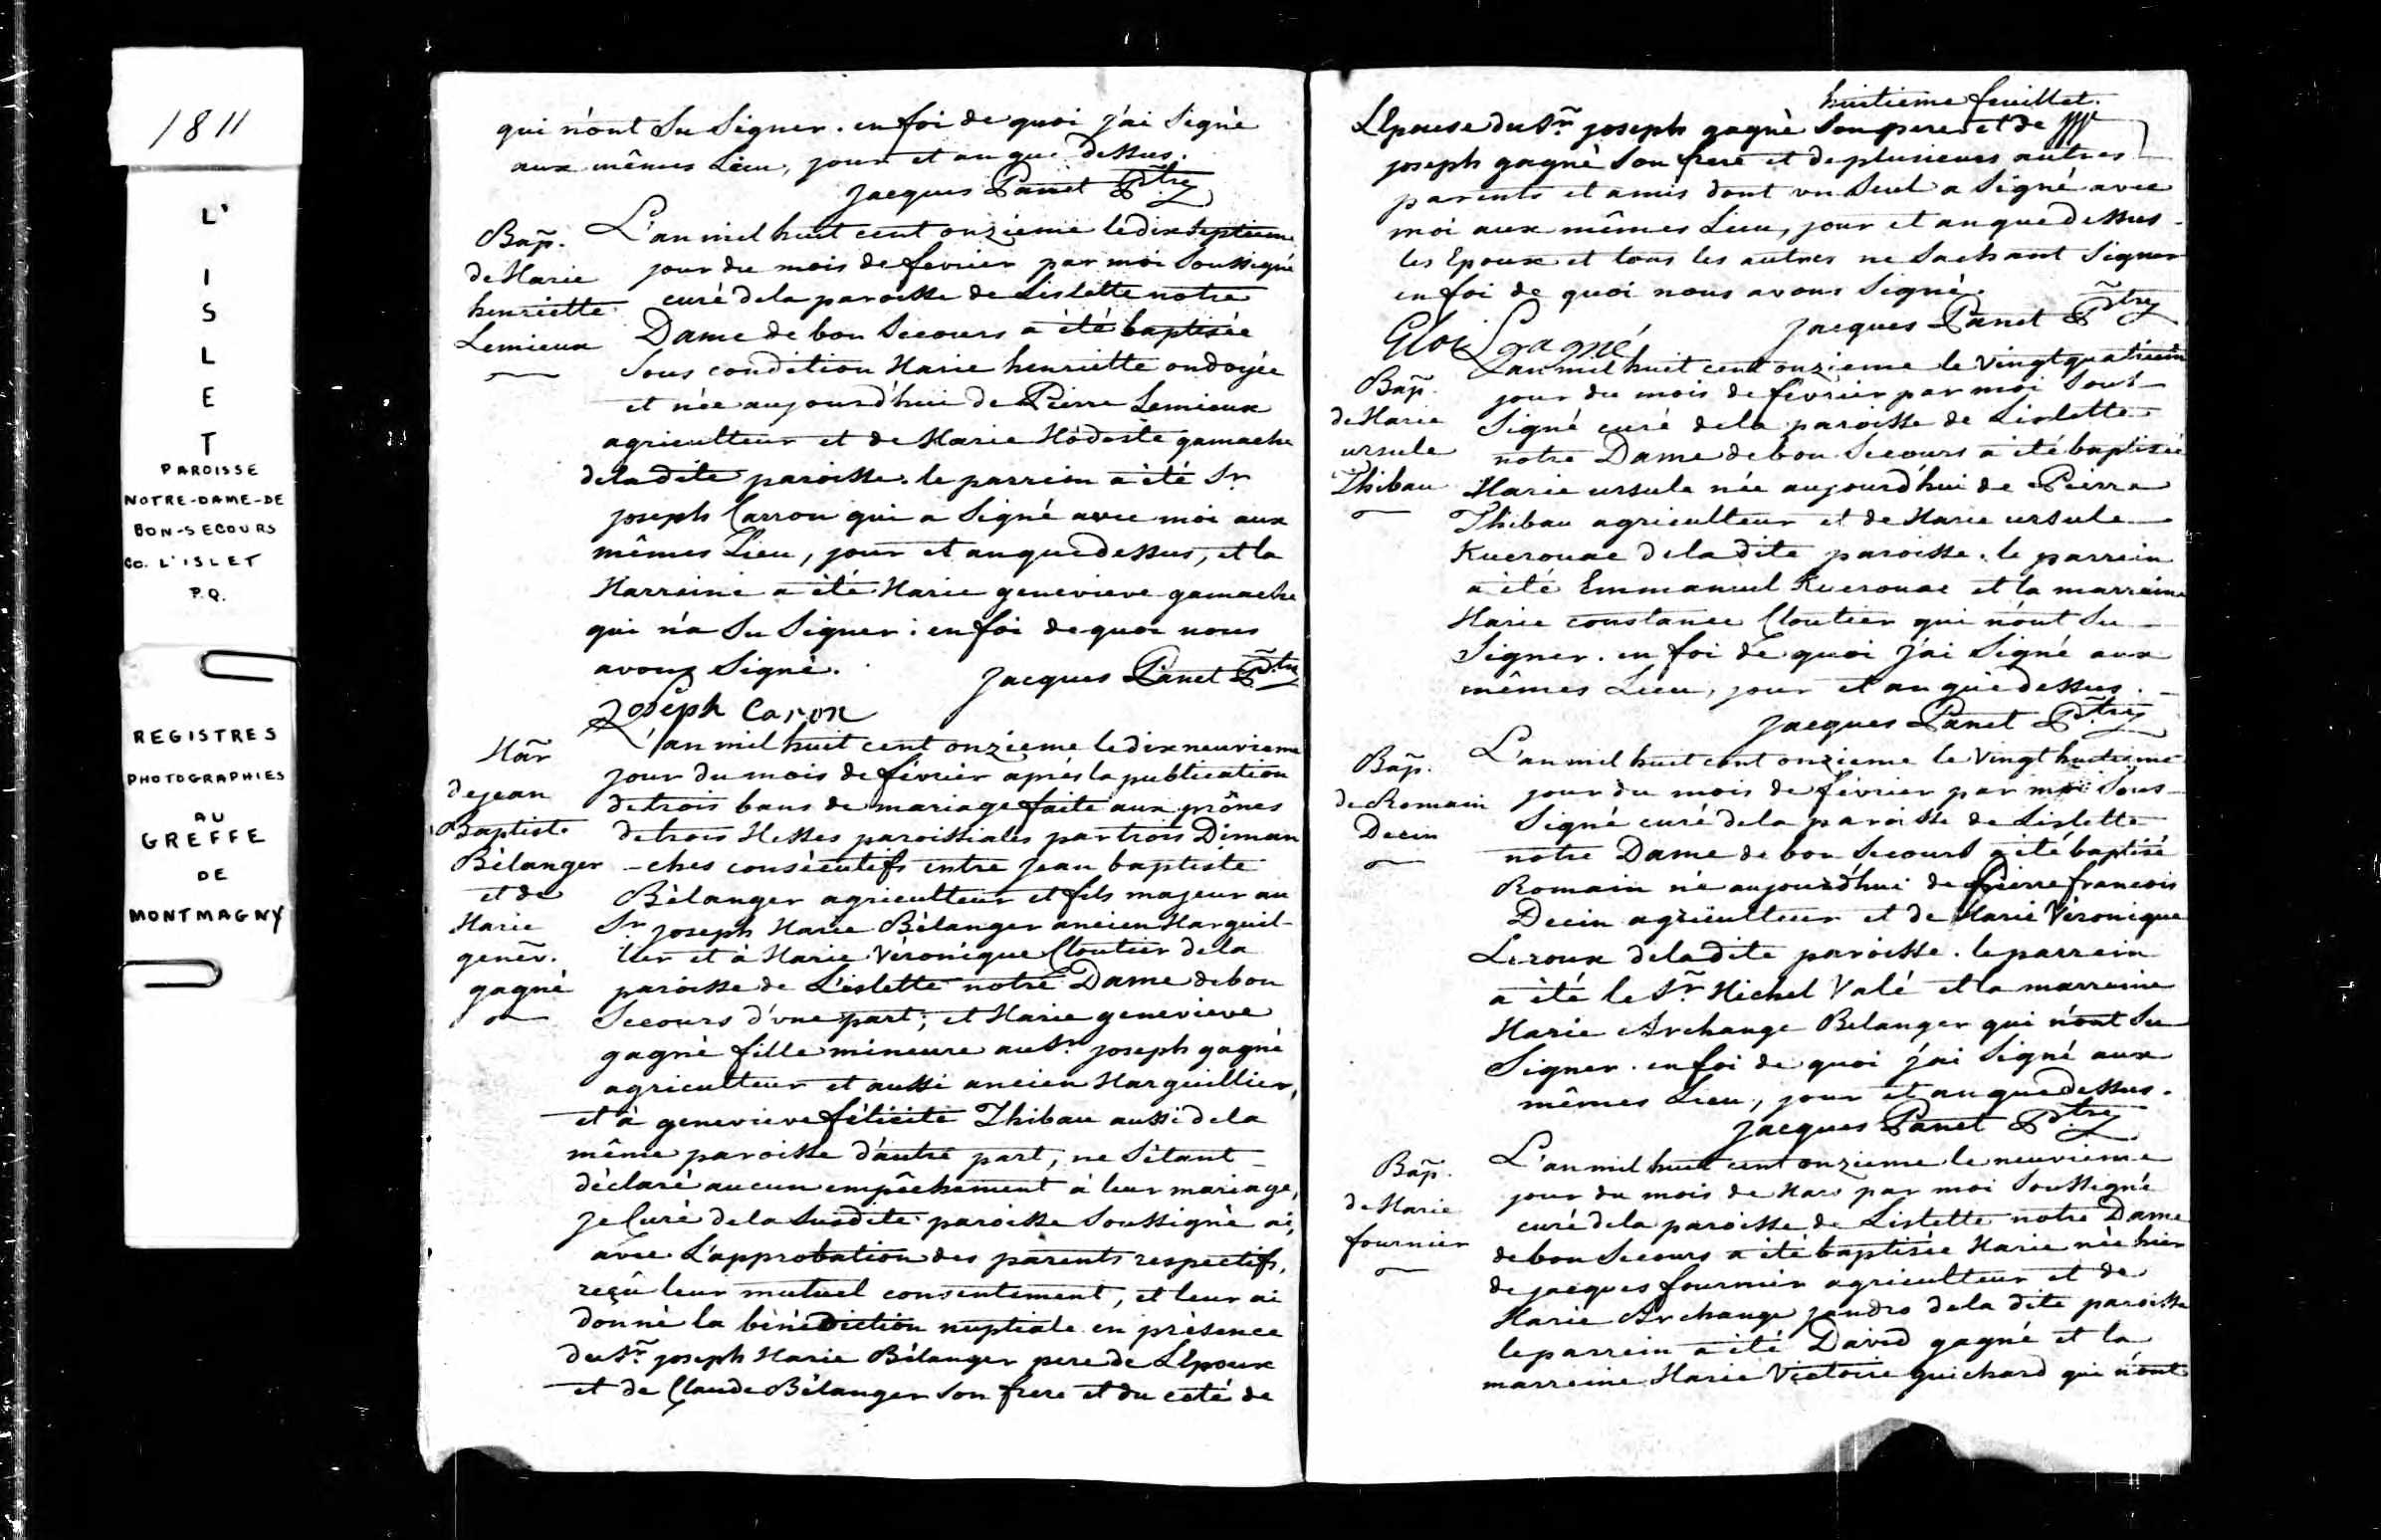 1811
L'
I
S
L
E
T
PAROISSE
NOTRE-DAME-DE
BON-SECOURS
CO. L'ISLET
P.Q.
REGISTRES
PHOTOGRAPHIES
AU
GREFFE
DE
MONTMAGNY
qui n'ont Su Signer. en foi de quoi j'ai Signé
aux mêmes Lieu, jour et an que dessus.
Jacques Panet Ptre
Bap.
de Marie
henriette
Lemieux
L'an mil huit cent onzieme le dix septieme
jour du mois de fevrier par moi Soussigné
curé de la paroisse de Lislette notre
Dame de bon Secours a été baptisée
Sous condition Marie henriette ondoyée
et née aujourd'hui de Pierre Lemieux
agriculteur et de Marie Modeste gamache
de la dite paroisse. le parrein a été Sr
joseph Carron qui a Signé avec moi aux
mêmes Lieu, jour et an que dessus, et la
Marreine a été Marie genevieve gamache
qui n'a Su Signer: en foi de quoi nous
avons Signé.
Jacques Panet Ptre
Joseph Caron
Mar
de jean
Baptiste
Bélanger
et de
Marie
genev.
gagné
L'an mil huit cent onzieme le dix neuvieme
jour du mois de février aprés la publication
de trois bans de mariage faite aux prônes
de trois Messes paroissiales par trois Diman
-ches consécutifs entre Jean baptiste
Bélanger agriculteur et fils majeur au
Sr joseph Marie Bélanger ancien Marguil-
lier et à Marie Véronique Cloutier de la
paroisse de L'islette notre Dame de bon
Secours d'une part; et Marie genevieve
gagné fille mineure au Sr joseph gagné
agriculteur et aussi ancien Marguillier,
et à genevieve félicité Thibau aussi de la
même paroisse d'autre part, ne S'étant
déclaré aucun empêchement à leur mariage,
je Curé de la Susdite paroisse Soussigné ai,
avec L'approbation des parents respectifs,
reçu leur mutuel consentement, et leur ai
donné la bénédiction nuptiale en présence
du Sr joseph Marie Bélanger pere de L'Epoux
et de Claude Bélanger Son frere et du coté de
huitieme feuillet.
L'Epouse du Sr joseph gagné Son pere et de
joseph gagné Son frere et de plusieurs autres
parents et amis dont un Seul a Signé avec
moi aux mêmes Lieu, jour et an que dessus
les Epoux et tous les autres ne Sachant Signer
en foi de quoi nous avons Signé.
Jacques Panet Ptre
Eloi gagné
Bap.
de Marie
ursule
Thibau
L'an mil huit cent onzieme le vingt quatrieme
jour du mois de fevrier par moi Sous-
Signé curé de la paroisse de Lislette
notre Dame de bon Secours a été baptisée
Marie ursule née aujourd'hui de Pierre
Thibau agriculteur et de Marie ursule
Kuerouac de la dite paroisse. le parrein
a été Emmanuel Kuerouac et la marreine
Marie constance Cloutier qui n'ont Su
Signer. en foi de quoi j'ai Signé aux
mêmes Lieu, jour et an que dessus.
Jacques Panet Ptre
Bap.
de Romain
Decin
L'an mil huit cent onzieme le vingt huitieme
jour du mois de février par moi Sous-
Signé curé de la paroisse de Lislette
notre Dame de bon Secours a été baptisé
Romain né aujourd'hui de Pierre francois
Decin agriculteur et de Marie Véronique
Leroux de la dite paroisse. le parrein
a été le Sr Michel Valé et la marreine
Marie Archange Belanger qui n'ont Su
Signer. en foi de quoi j'ai Signé aux
mêmes Lieu, jour et an que dessus.
Jacques Panet Ptre
Bap.
de Marie
fournier
L'an mil huit cent onzieme le neuvieme
jour du mois de Mars par moi Soussigné
curé de la paroisse de Lislette notre Dame
de bon Secours a été baptisée Marie née hier
de jacques fournier agriculteur et de
Marie Archange jandro de la dite paroisse
le parrein a été David gagné et la
marreine Marie Victoire guichard qui n'ont